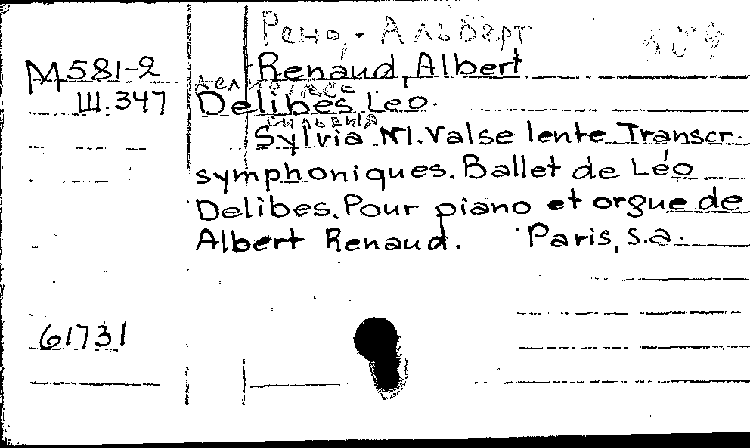 Рено, Альберт
M581-2
Renaud, Albert
Ш.347
Delibes, Leo.
Sylvia N1. Valse lente. Transcr.
symphoniques. Ballet de Léo
Delibes. Pour piano et orgue de
Albert Renaud. Paris, s.a.
61731